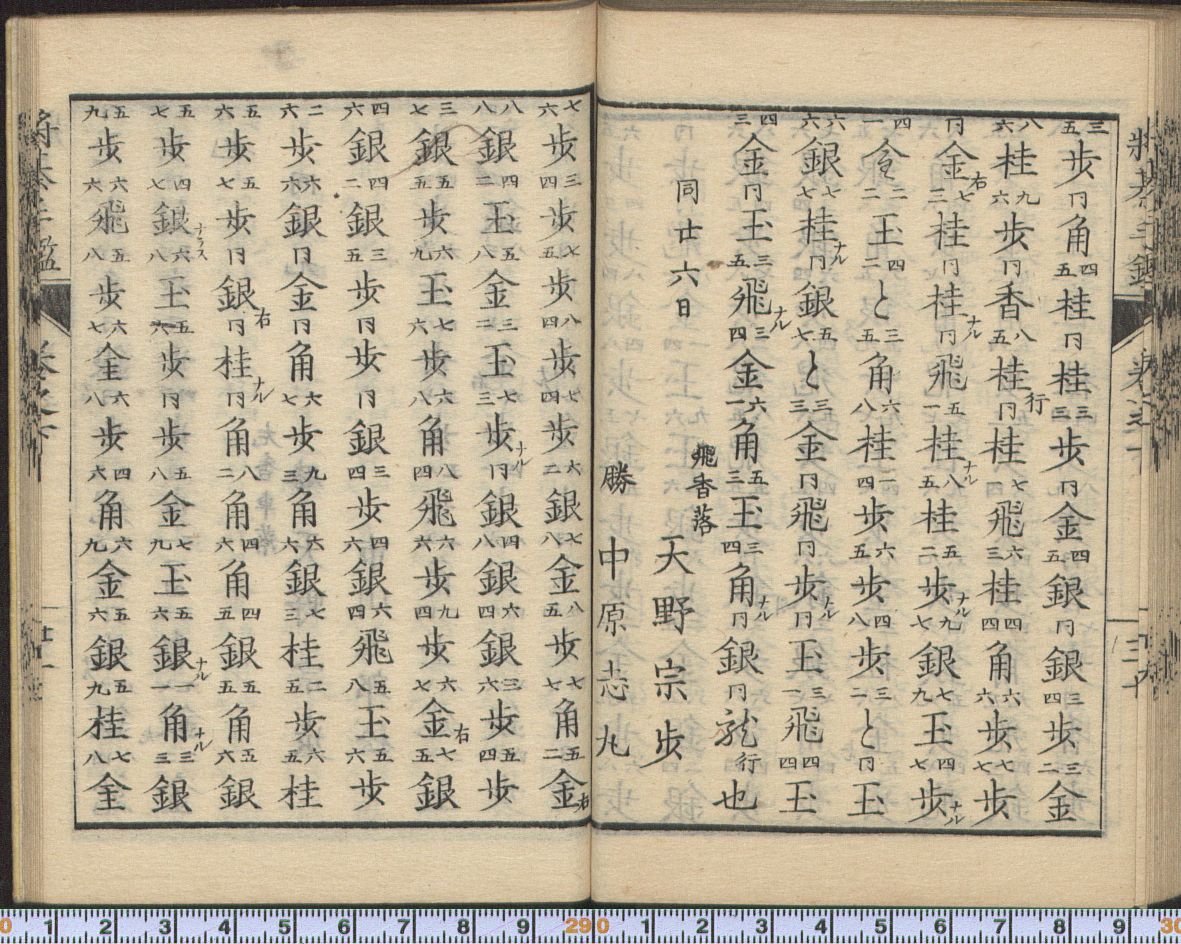 三五歩同角四五桂同桂三三歩同金四五銀同銀三四歩三二金
八六桂九六歩同香八五桂行同桂七四飛六三桂四四角六六歩七七歩
同金右七二桂同桂ナル同飛五一桂ナル八五桂五二歩ナル九七銀七九玉四七歩ナル
四一金二二玉四二と三五角六八桂一四歩六五歩四八歩三二と同玉
六六銀七七桂ナル同銀五七と三三金同飛同歩ナル同玉三一飛四四玉
四三金同玉三五飛ナル三四金六一角五三玉三四角ナル同銀同龍行也
同廿六日
飛香落 天野宗歩
勝 中原志丸
七六歩三四歩七五歩八四歩七四歩六二銀七八金八五歩七七角五二金右
八八銀四二玉五八金三二玉七三歩ナル同銀四八銀六四銀三六歩五四歩
三七銀五五歩六九玉七六歩六八角八四飛六六歩九四歩六七金右七五銀
四六銀四二銀三五歩同歩同銀三四歩四六銀六四飛五八玉五六歩
二六歩六六銀同金同角六七歩九三角六六銀七三桂二五歩六五桂
五六歩五七歩同銀右同桂ナル同角八二角四六角四五銀五五角五六銀
五七歩四七銀ナラス六八玉五六歩同歩五八金七九玉五六銀ナル一一角ナル三三銀
五九歩六六飛五八歩六七全六八歩四六角六九金五六銀五九桂七八全